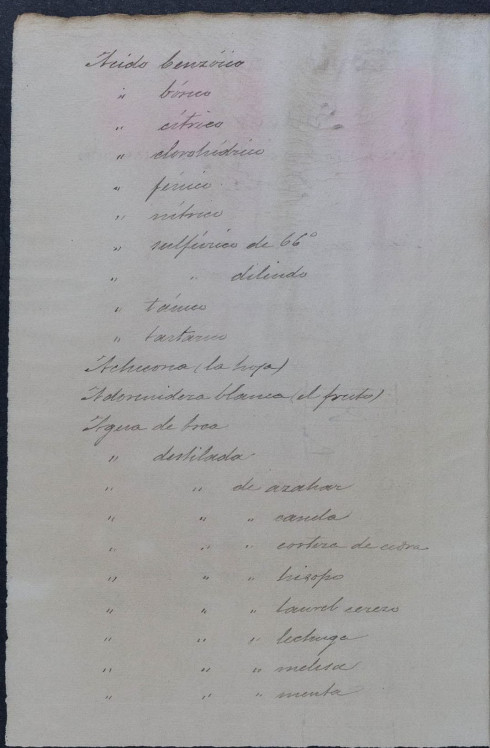 Acido benzóico
" bórico
" cítrico
" clorohídrico
" fénico
" nítrico
" sulfúrico de 66°
" " diluido
" tánico
" tartarico
Achicoria (la hoja)
Adormidera blanca (el fruto)
Agua de brea
" destilada
" " de azahar
" " " canela
" " " corteza de cidra
" " " hisopo
" " " laurel cerezo
" " " lechuga
" " " melisa
" " " menta